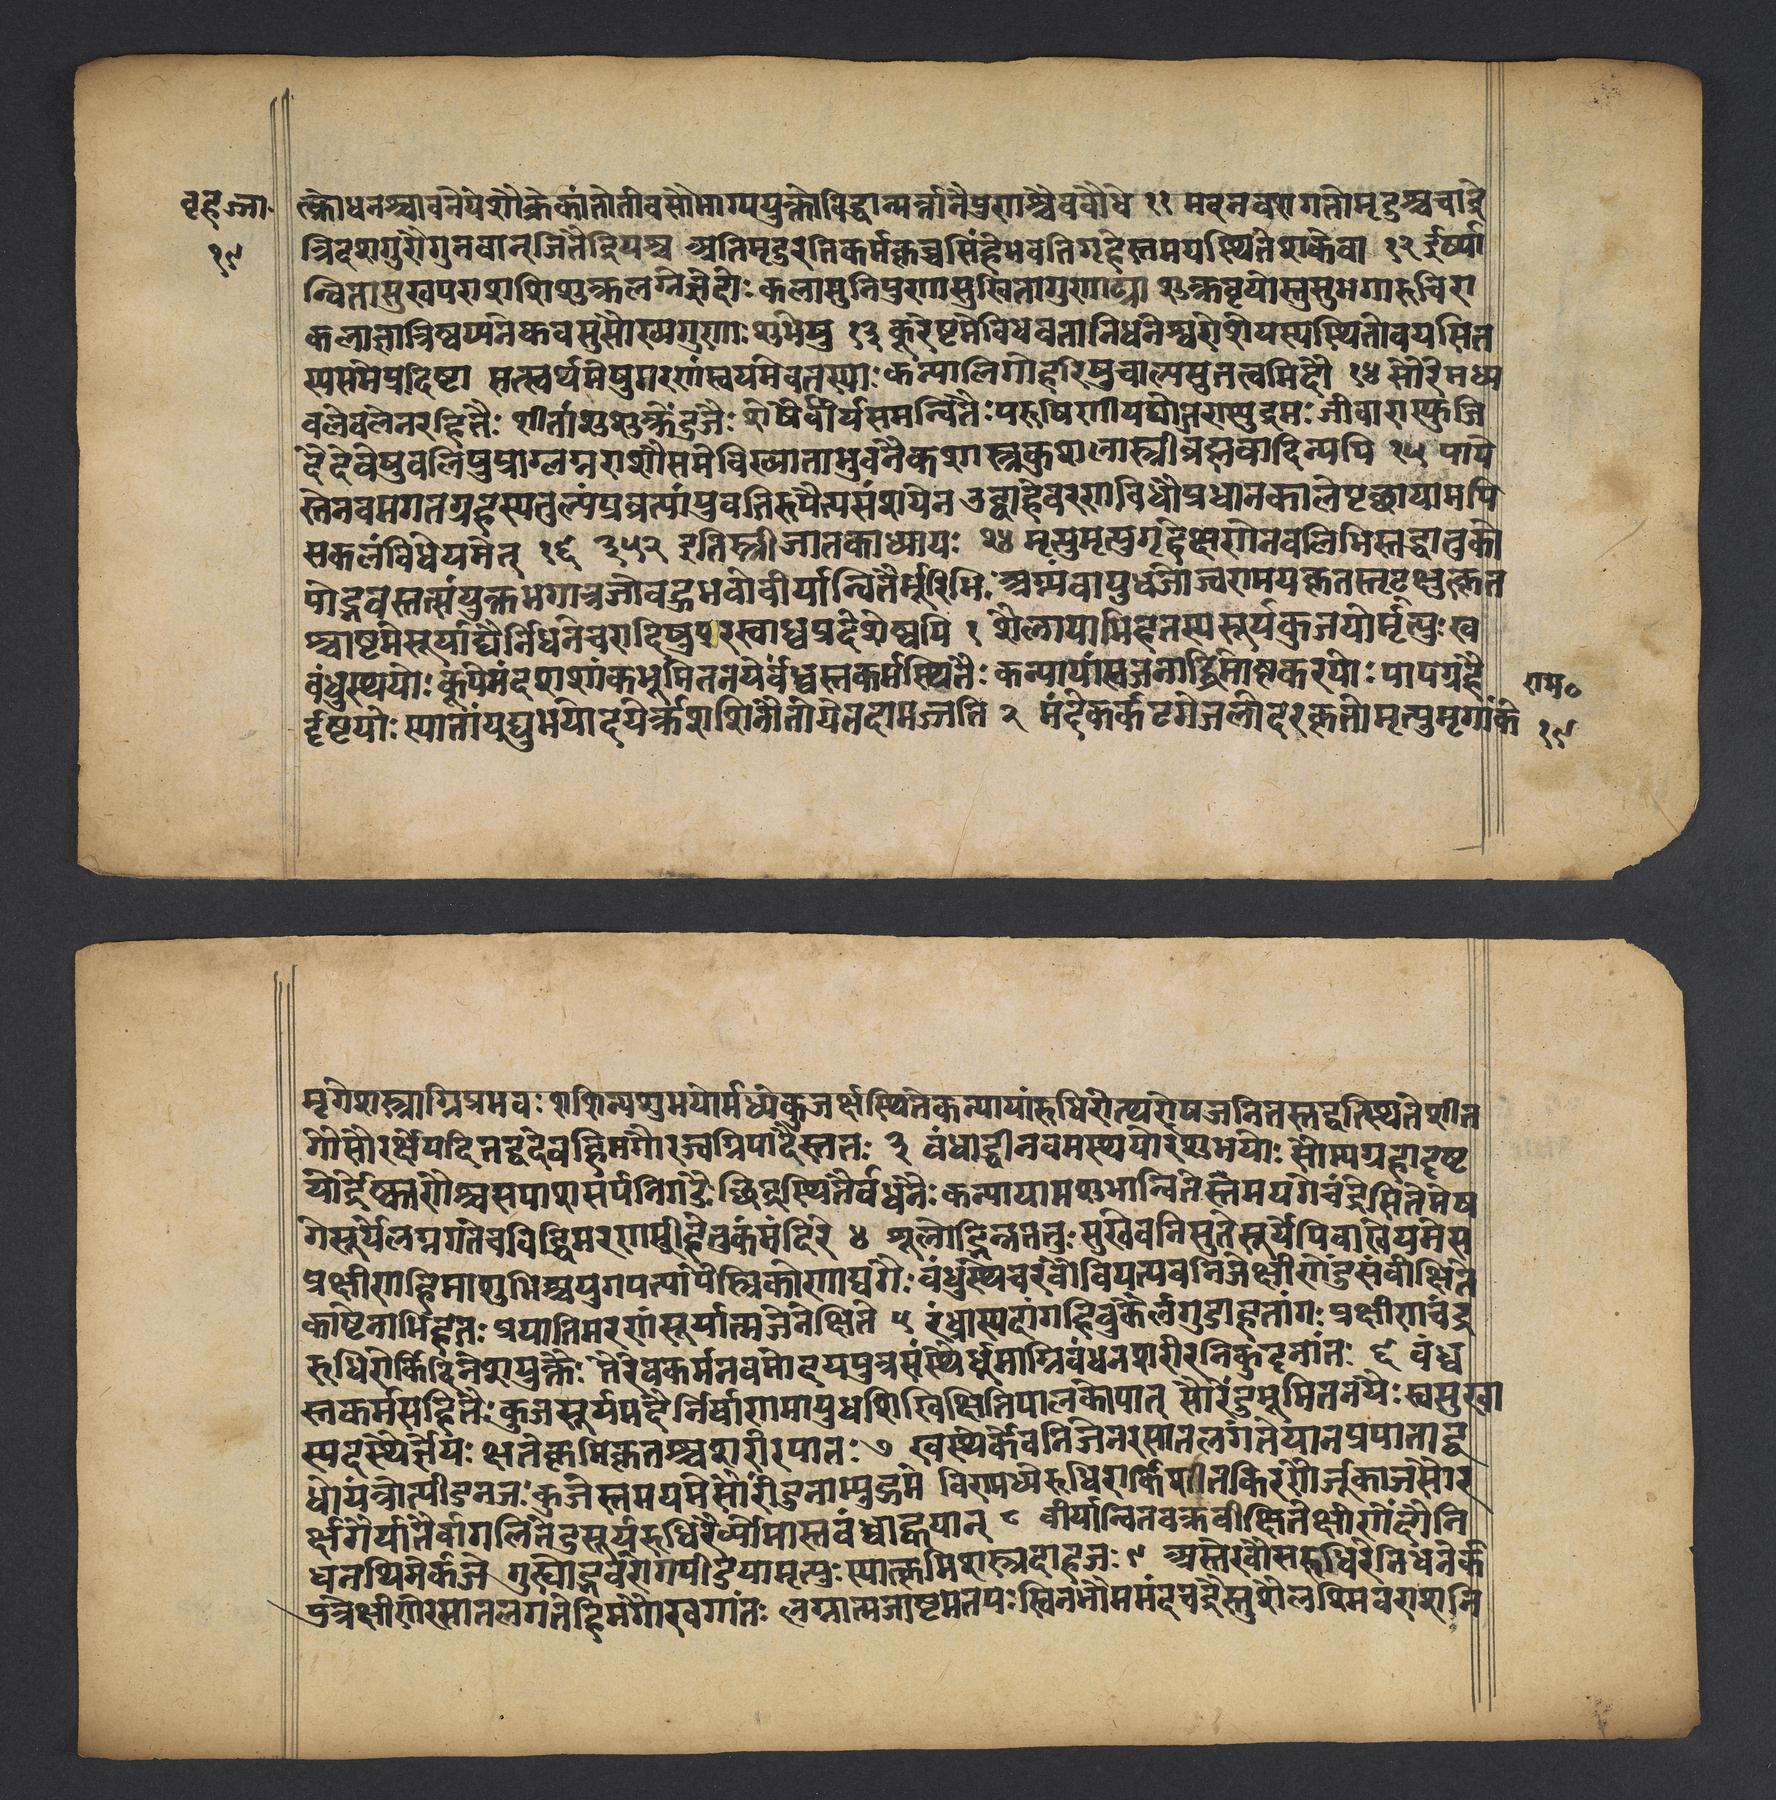 बृहज्जा.
१९
त्क्रोधनश्चावनेये शौक्रे कांतोतीवसौभाग्ययुक्तो विद्वान्भर्त्ता नैपुणाश्चैव बौधे ११ मदनवशगतो मृदुश्च चांद्रे
त्रिदशगुरौ गुनवान् जितेंद्रियश्च अतिमृदुरतिकर्मकृच्च सिंहे भवति गृहेस्तमयस्थिते शकेवा १२ ईर्ष्या
न्विता सुखपरा शशिशुक्रलग्ने ज्ञेंदोः कलासु निपुणा सुखिता गुणाढ्या शुक्रबुधयोस्तु सुभगा रुचिरा
कलाज्ञा त्रिष्वप्यनेकवसुसौख्यगुणाः शुभेषु १३ क्रूरेष्टमे विधवता निधनेश्वरोंशे यस्य स्थितो वयसि त
स्य समे प्रदिष्टा सत्स्वर्थमेषु मरणं स्वयमेव तस्याः कन्यालिगोहरिषु चाल्पसुतत्वमिंदौ १४ सौरे मध्य
बले बलेन रहितैः शीतांशुशुक्रेंदुजैः शेषैर्वीर्यसमन्वितैः पुरुषिणी यद्योजराश्युद्गमः जीवारास्फुजि
देंदवेषु बलिषु प्राग्लग्नराशौ समे विख्याता भुवनैकशास्त्रकुशला स्त्री ब्रह्मवादिन्यपि १५ पापे
स्तेनवमगतग्रहस्य तुल्यं प्रव्रज्यां युवतिरुपैत्यसंशयेन उद्वाहे वरणविधौ प्रधानकाले पृच्छायामपि
सकलं विधेयमेत् १६ ३५२ इति स्त्रीजातकाध्यायः २४ मृत्युमृत्युगृहेक्षणेन बलिभिस्तद्धातुको
पोद्भवस्तत्संयुक्तभगात्रजो बहुभवो वीर्यान्वितैर्भूरिभिः अग्न्यंबायुधजो ज्वरामयकृतस्तृट्क्षुत्कृत
श्चाष्टमे सूर्याद्यैर्निधने चरादिषु परस्वाध्वप्रदेशेष्वपि १ शैलाग्राभिहतस्य सूर्यकुजयोर्मृत्युः ख
बंधुस्थयोः कूपे मंदशशांकभूमितनयैर्बंध्वस्तकर्मस्थितैः कन्यायां स्वजनाद्धिमोष्णकरयोः पापग्रहै
र्दृष्टयोः स्यातां यद्युभयोदयेर्कशशिनौ तोये तदा मज्जति २ मंदे कर्कटगे जलोदरकृतो मृत्युर्मृगांके
राम०
१९
मृगे शस्त्राग्निप्रभवः शशिन्यशुभयोर्मध्ये कुजर्क्षस्थिते कन्यायां रुधिरोत्थशोषजनितस्तद्वत्स्थिते शीत
गौ सौरर्क्षे यदि तद्वदेव हिमगौ रज्वग्निपातैस्ततः ३ बंधाद्धीनवमस्थयोरशुभयोः सौम्यग्रहादृष्ट
योर्द्रेष्काणैश्च सपाशसर्पनिगडैः छिद्रस्थितैर्बंधनैः कन्यायामशुभान्वितेस्तमयगे चंद्रे सिते मेष
गे सूर्ये लग्नगते च विद्धि मरणं स्त्रीहेतुकं मंदिरे ४ शूलोद्भिन्नतनुः सुखेवनिसुते सूर्येपि वा खे यमे स
प्रक्षीणहिमांशुभिश्च युगपत्पापैस्त्रिकोणाद्यगैः बंधुस्थे च रवौ वियत्यवनिजे क्षीणेंदुसंवीक्षिते
काष्टेनाभिहतः प्रयाति मरणं सूर्यात्मजेनेक्षिते ५ रंध्रास्पदांगहिबुकैर्लगुडाहतांगः प्रक्षीणचंद्र
रुधिरार्किदिनेशयुक्तैः तैरेव कर्मनवमोदयपुत्रसंस्थैर्धूमाग्निबंधनशरीरनिकुट्टनांतः ६ बंध्व
स्तकर्मसहितैः कुजसूर्यमंदैर्निर्याणमायुधशिखिक्षितिपालकोपात् सौरेंदुभूमितनयैः स्वसुखा
स्पदस्थैर्ज्ञेयः क्षतकृमिकृतश्च शरीरपातः ७ खस्थेर्केवनिजे रसातलगते यानप्रपाताद्व
धो यंत्रोत्पीडनजः कुजेस्तमयगे सौरेंदुनाभ्युद्गमे विण्मध्ये रुधिरार्किशीतकिरणैर्जूकाजसौर
र्क्षगैर्यातैर्वा गलितेंदुसूर्यरुधिरैर्व्योमास्तबंध्वाह्वयान् ८ वीर्यान्वितवक्रवीक्षिते क्षीणेंदौ नि
धनस्थितेर्कजे गुह्योद्भवरोगपीडया मृत्युः स्यात्कृमिशस्त्रदाहजः ९ अस्ते रवौ सरुधिरे निधनेर्क
पुत्रे क्षीणे रसातलगते हिमगौ खगांतः लग्नात्मजाष्टमतपःस्विनभौममंदचंद्रैस्तु शैलशिखराशनि